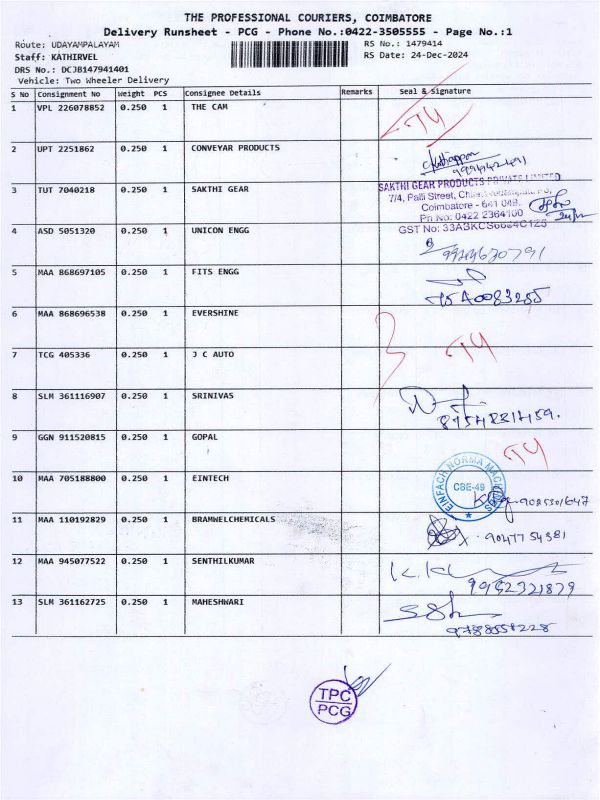 THE PROFESSIONAL COURIERS, COIMBATORE
Delivery Runsheet - PCG - Phone No.:0422-3505555 - Page No.:1
Route: UDAYAMPALAYAM RS No.: 1479414
Staff: KATHIRVEL RS Date: 24-Dec-2024
DRS No.: DCJB147941401
Vehicle: Two Wheeler Delivery
S No Consignment No Weight PCS Consignee Details Remarks Seal & Signature
1 VPL 226078852 0.250 1 THE CAM
2 UPT 2251862 0.250 1 CONVEYAR PRODUCTS
3 TUT 7040218 0.250 1 SAKTHI GEAR
SAKTHI GEAR PRODUCTS PRIVATE LIMITED
7/4, Palli Street,
Coimbatore - 641 048.
Ph No: 0422 2364100
GST No:
4 ASD 5051320 0.250 1 UNICON ENGG
5 MAA 868697105 0.250 1 FITS ENGG
6 MAA 868696538 0.250 1 EVERSHINE
7 TCG 405336 0.250 1 J C AUTO
8 SLM 361116907 0.250 1 SRINIVAS
9 GGN 911520815 0.250 1 GOPAL
10 MAA 705188800 0.250 1 EINTECH
EINFACH NORMA MACHINES
CBE-49
11 MAA 110192829 0.250 1 BRAMWELCHEMICALS
9047754381
12 MAA 945077522 0.250 1 SENTHILKUMAR
9952321879
13 SLM 361162725 0.250 1 MAHESHWARI
TPC
PCG